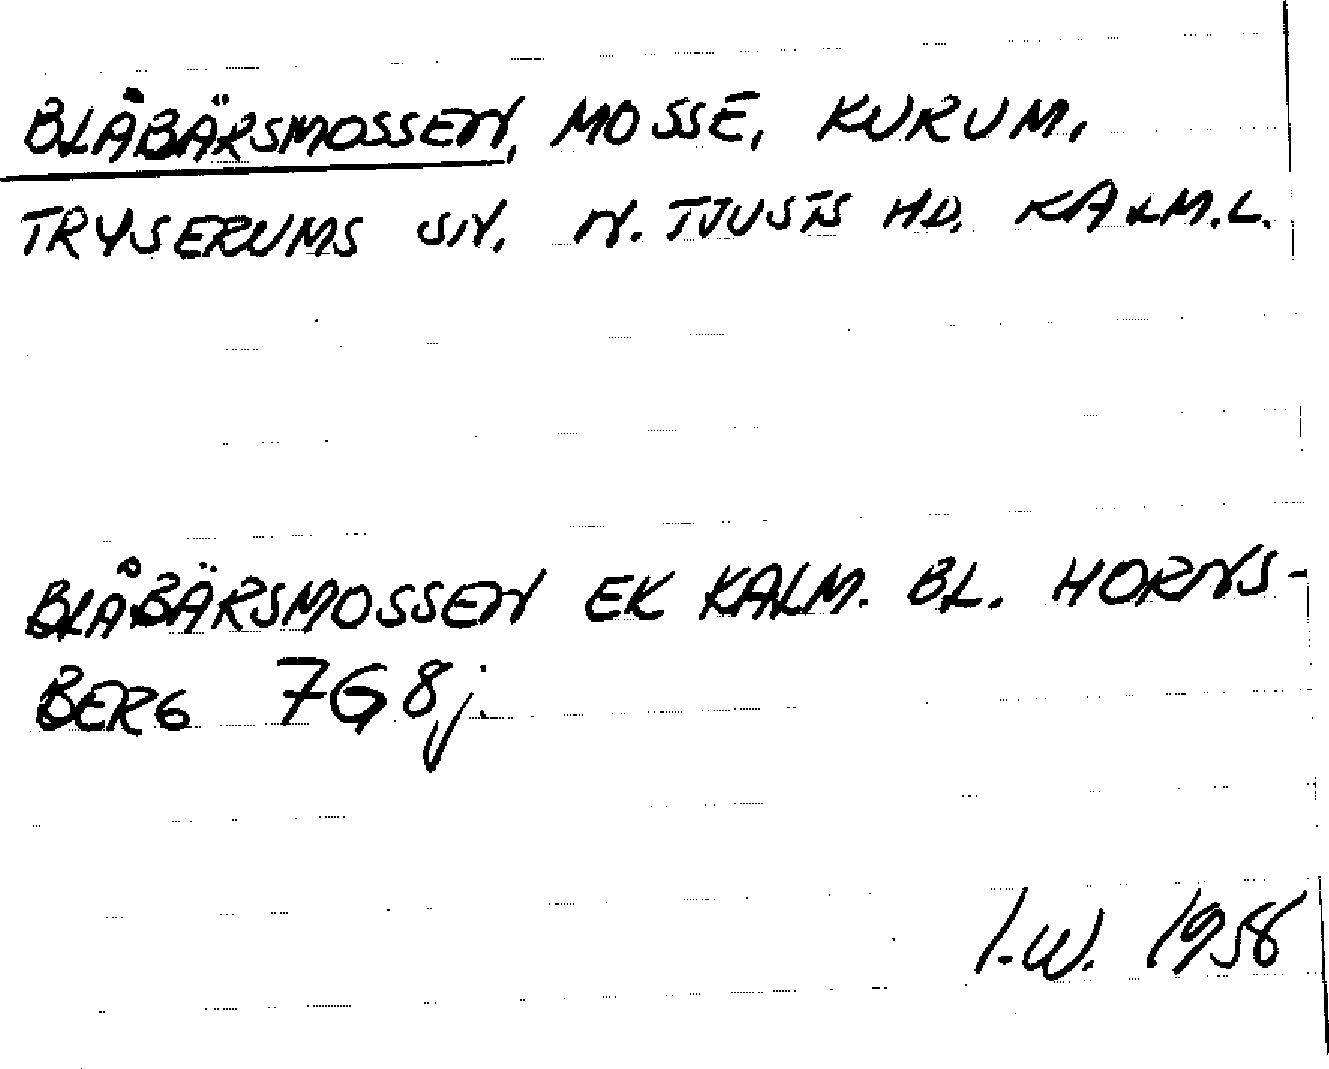 BLÅBÄRSMOSSEN, MOSSE, KURUM,
TRYSERUMS SN. N. TJUSTS HD. KALM.L.
BLÅBÄRSMOSSEN EK KALM. BL. HORNS-
BERG 7G8j.
I.W. 1958